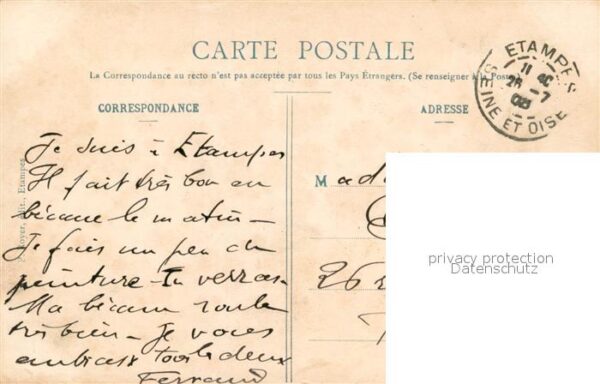 CARTE POSTALE
La Correspondance au recto n'est pas acceptée par tous les Pays Étrangers. (Se renseigner à la Poste)
CORRESPONDANCE
ADRESSE
ETAMPES
11
26 - 7
08
SEINE ET OISE
Je suis à Etampes
Il fait très bon en
bécane le matin -
Je fais un peu de
peinture - Tu verras -
Ma bécane roule
très bien - Je vous
embrasse tous les deux
Ferrand
Royer, Etampes
M ad
26
privacy protection
Datenschutz